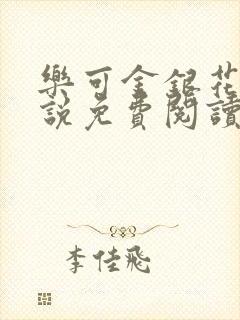 樂可金銀花
說免費閱讀
李佳飛